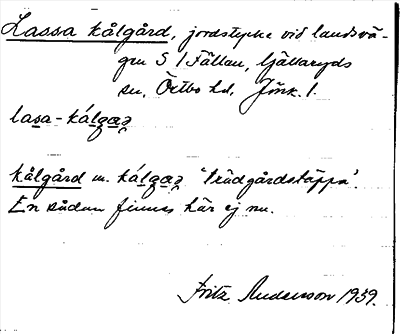 Lassa kålgård, jordstycke vid landsvä-
gen S i Fållan, Gällaryds
sn, Östbo hd, Jönk. l.
lasa-kálgaɹ
kålgård m. kálgaɹ 'trädgårdstäppa'.
En sådan finnes här ej nu.
Fritz Andersson 1939.